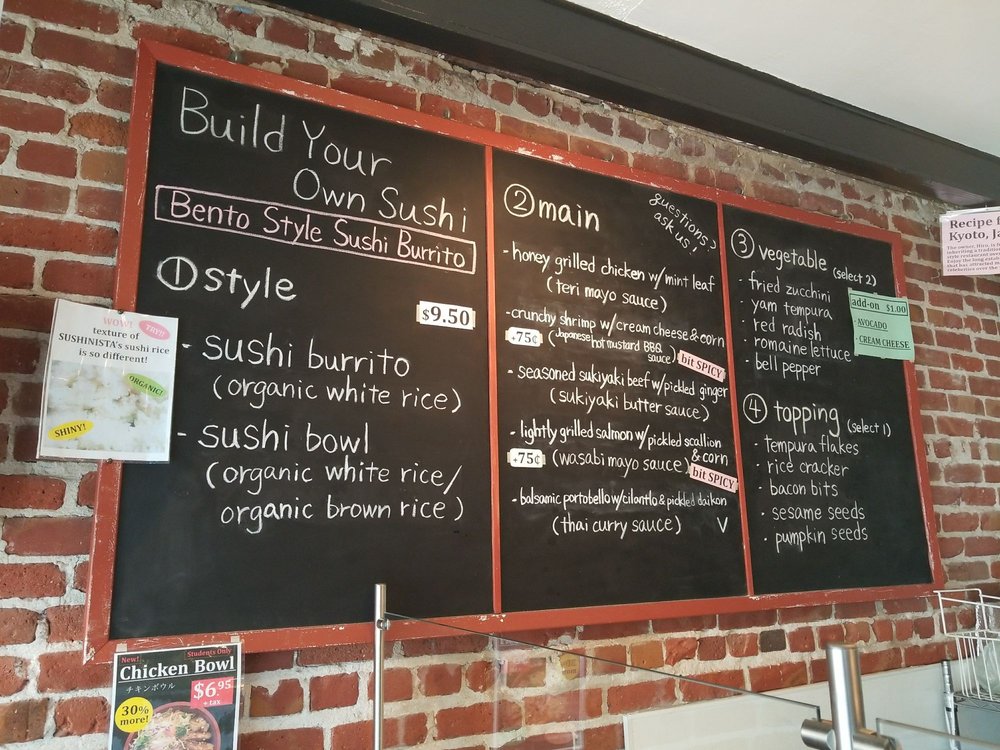 Build Your
Own Sushi
Bento Style Sushi Burrito
① style
$9.50
- sushi burrito
(organic white rice)
- sushi bowl
(organic white rice/
organic brown rice)
② main
questions?
ask us!
- honey grilled chicken w/ mint leaf
(teri mayo sauce)
- crunchy shrimp w/ cream cheese & corn
+75¢ (Japanese hot mustard BBQ
sauce)
bit SPICY
- seasoned sukiyaki beef w/ pickled ginger
(sukiyaki butter sauce)
- lightly grilled salmon w/ pickled scallion
& corn
+75¢ (wasabi mayo sauce)
bit SPICY
- balsamic portobello w/ cilantlo & pickled daikon
(thai curry sauce) V
③ vegetable (select 2)
· fried zucchini
· yam tempura
· red radish
· romaine lettuce
· bell pepper
add-on $1.00
- AVOCADO
- CREAM CHEESE
④ topping (select 1)
· tempura flakes
· rice cracker
· bacon bits
· sesame seeds
· pumpkin seeds
WOW!
TRY!!
texture of
SUSHINISTA's sushi rice
is so different!
ORGANIC!
SHINY!
New! Students Only
Chicken Bowl
チキンボウル
$6.95
+ tax
30%
more!
Recipe f
Kyoto, Ja
The owner, Hiro, is
inheriting a tradition
style restaurant
Enjoy the long
that has attracted
celebrities over the